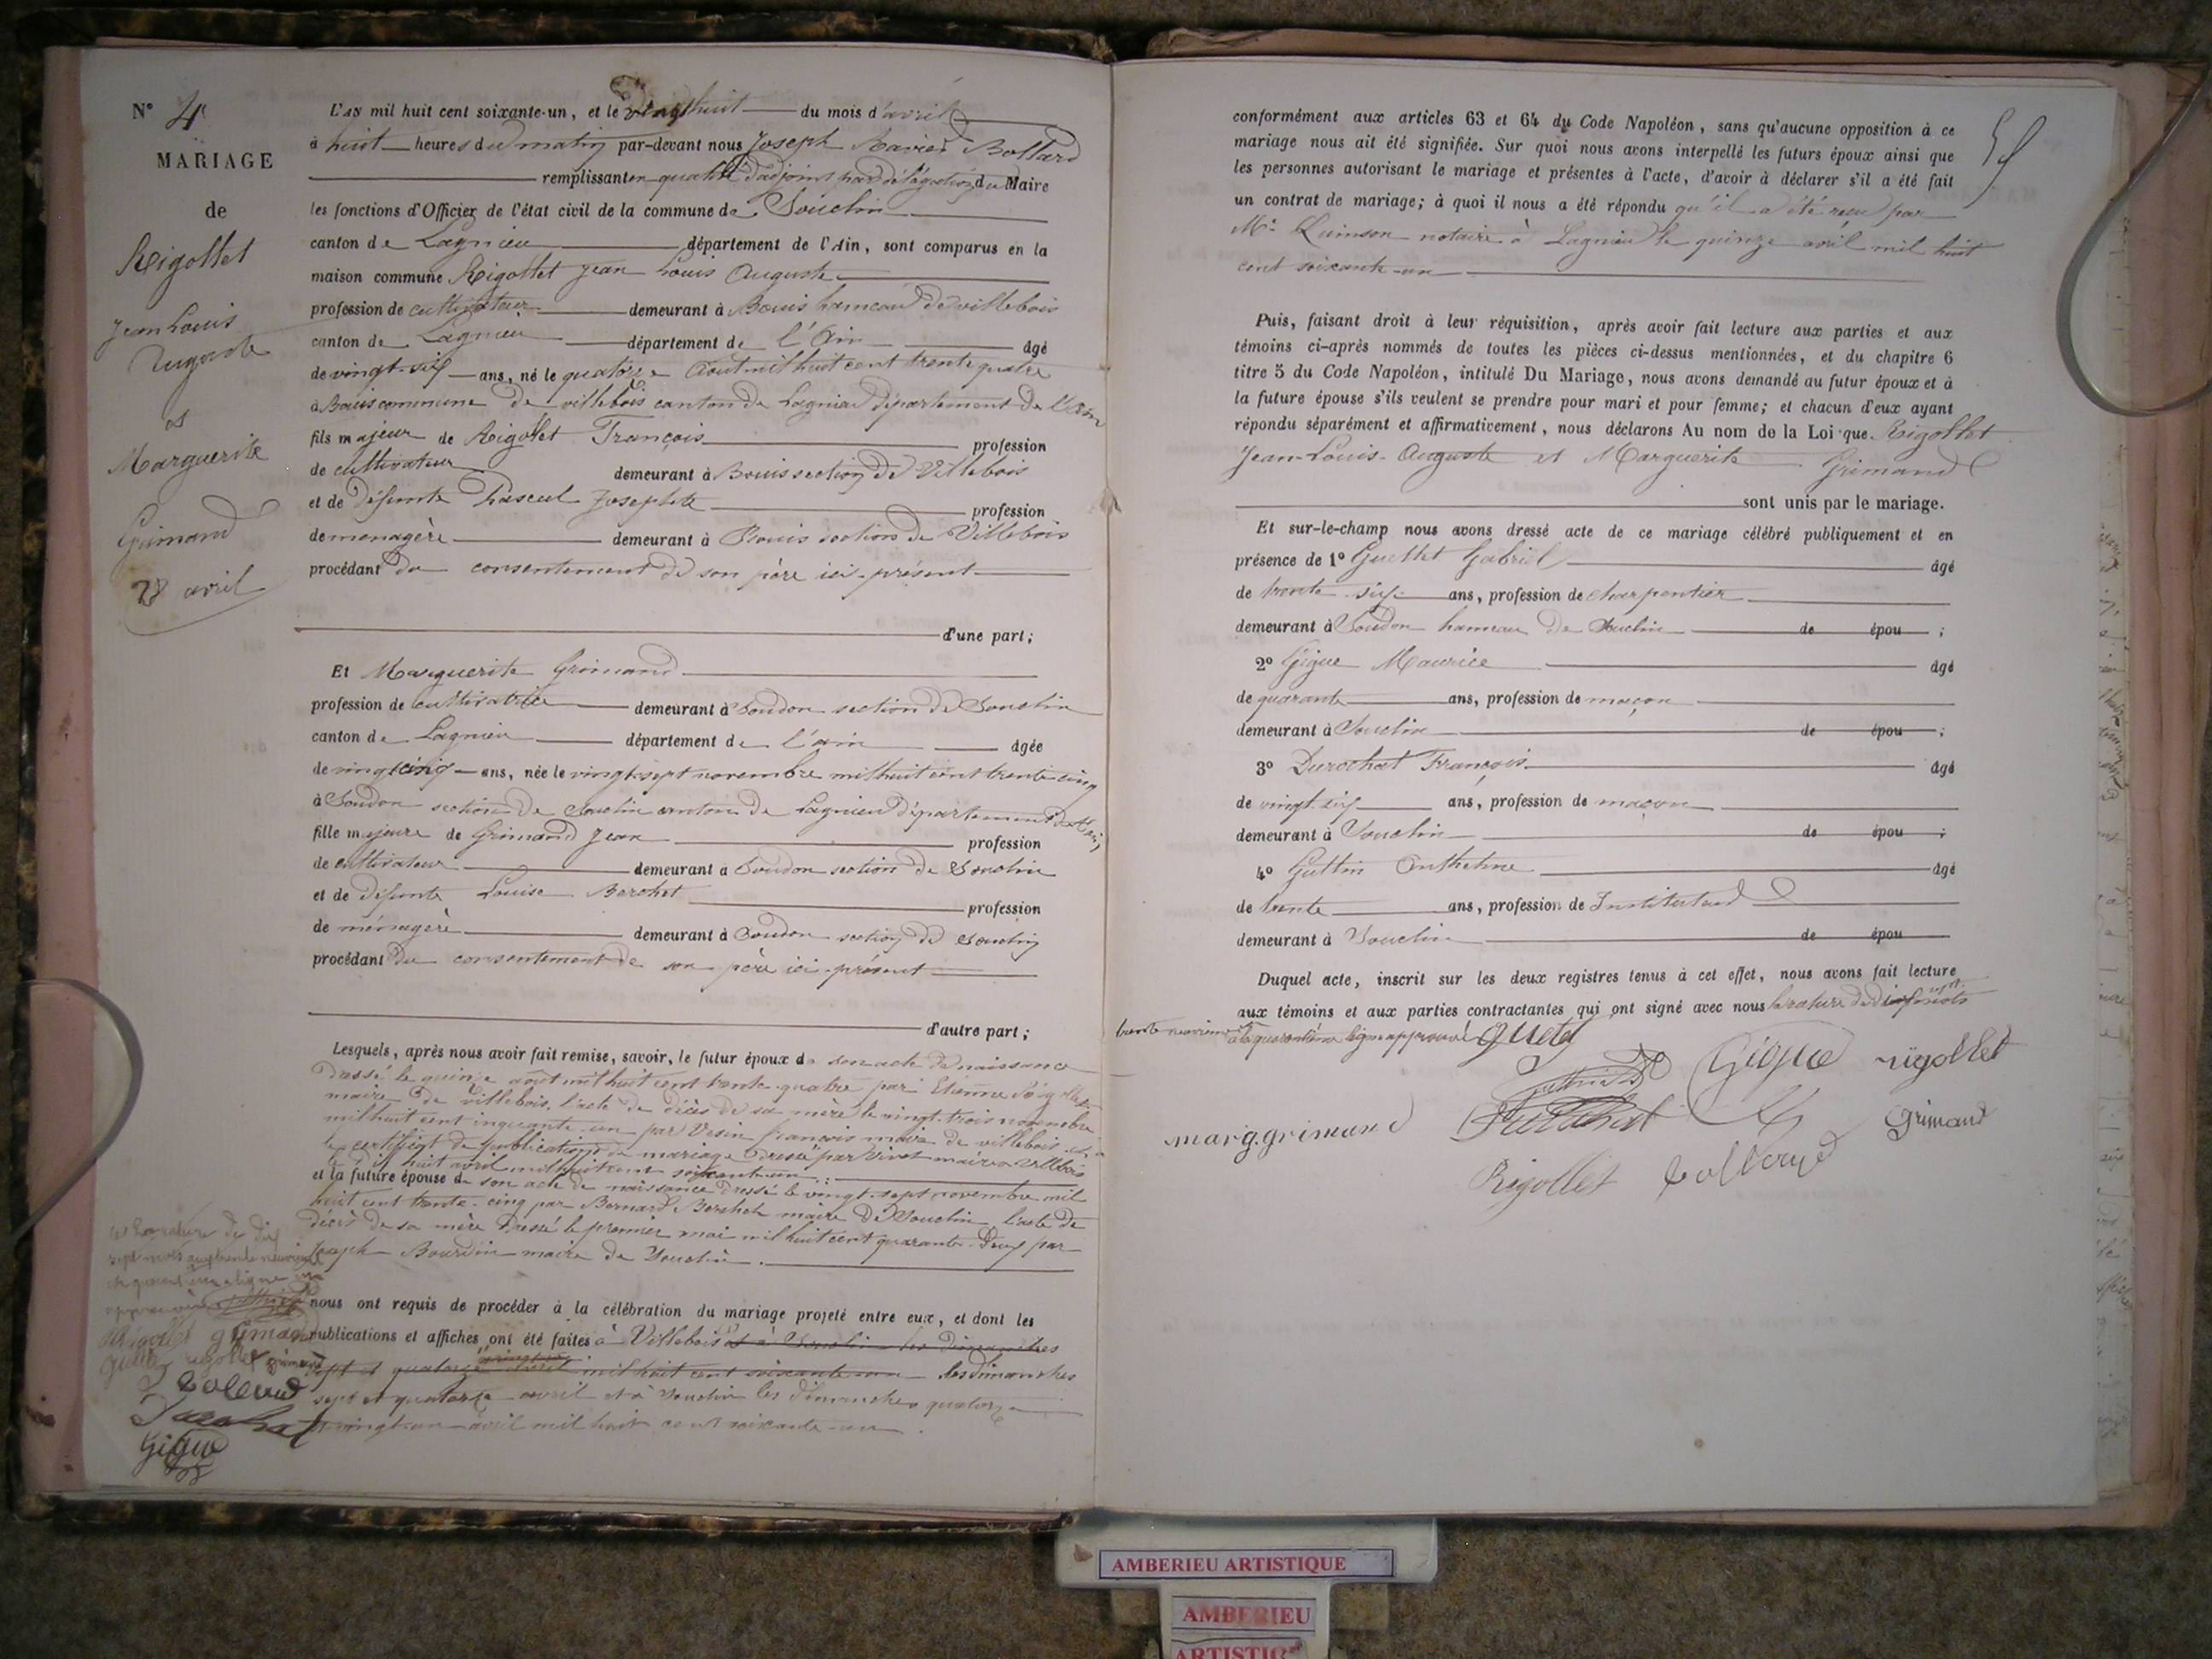 N° 4
MARIAGE
de
Rigollet
Jean Louis
Auguste
et
Marguerite
Grimand
28 avril
L'an mil huit cent soixante-un, et le vingt huit du mois d'avril
à huit heures du matin par-devant nous Joseph Xavier Bollard
remplissant en qualité d'adjoint par délégation du Maire
les fonctions d'Officier de l'état civil de la commune de Souclin
canton de Lagnieu département de l'Ain, sont comparus en la
maison commune Rigollet Jean Louis Auguste
profession de cultivateur demeurant à Bouis hameau de villebois
canton de Lagnieu département de l'Ain âgé
de vingt-six ans, né le quatorze Aout mil huit cent trente quatre
à Bouis commune de villebois canton de Lagnieu département de l'Ain
fils majeur de Rigollet François profession
de cultivateur demeurant à Bouis section de Villebois
et de défunte Pascal Josephte profession
de menagère demeurant à Bouis section de Villebois
procédant du consentement de son père ici-présent
d'une part;
Et Marguerite Grimand
profession de cultivatrice demeurant à Soudon section de Souclin
canton de Lagnieu département de l'ain âgée
de vingt cinq ans, née le vingt-sept novembre mil huit cent trente cinq
à Soudon section de Souclin canton de Lagnieu département de l'Ain,
fille majeure de Grimand Jean profession
de cultivateur demeurant à Soudon section de Souclin
et de défunte Louise Berchet profession
de ménagère demeurant à Soudon section de Souclin
procédant du consentement de son père ici-présent
d'autre part;
Lesquels, après nous avoir fait remise, savoir, le futur époux de son acte de naissance
dressé le quinze août mil huit cent trente-quatre par Etienne Rigollet
maire de villebois, l'acte de décès de sa mère le vingt-trois novembre
mil huit cent cinquante un par François maire de villebois,
le certificat de publication de mariage dressé par Vivet maire à villebois
le huit avril mil huit cent soixante un
et la future épouse de son acte de naissance dressé le vingt-sept novembre mil
huit cent trente-cinq par Bernard Berchet maire de Souclin l'acte de
décès de sa mère dressé le premier mai mil huit cent quarante-deux par
Joseph Bourdin maire de Souclin.
la rature de dix
sept mots trente neuvième
et quarantième ligne
approuvée
Rigollet grimand
rigollet grimand
Bollard
Durochat
Gigue
nous ont requis de procéder à la célébration du mariage projeté entre eux, et dont les
publications et affiches ont été faites à Villebois et à Souclin les dimanches
sept et quatorze avril mil huit cent soixante un les dimanches
sept et quatorze avril et à Souclin les dimanches quatorze
et vingt-un avril mil huit cent soixante-un.
conformément aux articles 63 et 64 du Code Napoléon, sans qu'aucune opposition à ce
mariage nous ait été signifiée. Sur quoi nous avons interpellé les futurs époux ainsi que
les personnes autorisant le mariage et présentes à l'acte, d'avoir à déclarer s'il a été fait
un contrat de mariage; à quoi il nous a été répondu qu'il a été reçu par
Me Quinson notaire à Lagnieu le quinze avril mil huit
cent soixante-un
Puis, faisant droit à leur réquisition, après avoir fait lecture aux parties et aux
témoins ci-après nommés de toutes les pièces ci-dessus mentionnées, et du chapitre 6
titre 5 du Code Napoléon, intitulé Du Mariage, nous avons demandé au futur époux et à
la future épouse s'ils veulent se prendre pour mari et pour femme; et chacun d'eux ayant
répondu séparément et affirmativement, nous déclarons Au nom de la Loi que Rigollet
Jean-Louis-Auguste et Marguerite Grimand
sont unis par le mariage.
Et sur-le-champ nous avons dressé acte de ce mariage célébré publiquement et en
présence de 1° Guettet Gabriel âgé
de trente-six ans, profession de charpentier
demeurant à Soudon hameau de Souclin de épou ;
2° Gigue Maurice âgé
de quarante ans, profession de maçon
demeurant à Souclin de épou ;
3° Durochat François âgé
de vingt-six ans, profession de maçon
demeurant à Souclin de épou ;
4° Guttin Anthelme âgé
de trente ans, profession de Instituteur
demeurant à Souclin de épou
Duquel acte, inscrit sur les deux registres tenus à cet effet, nous avons fait lecture
aux témoins et aux parties contractantes qui ont signé avec nous la rature de dix sept mots
trente neuvième et à la quarantième ligne approuvé
Gigue rigollet
Durochat
marg. grimand grimand
Rigollet Bollard
AMBERIEU ARTISTIQUE
AMBERIEU
ARTISTIQUE